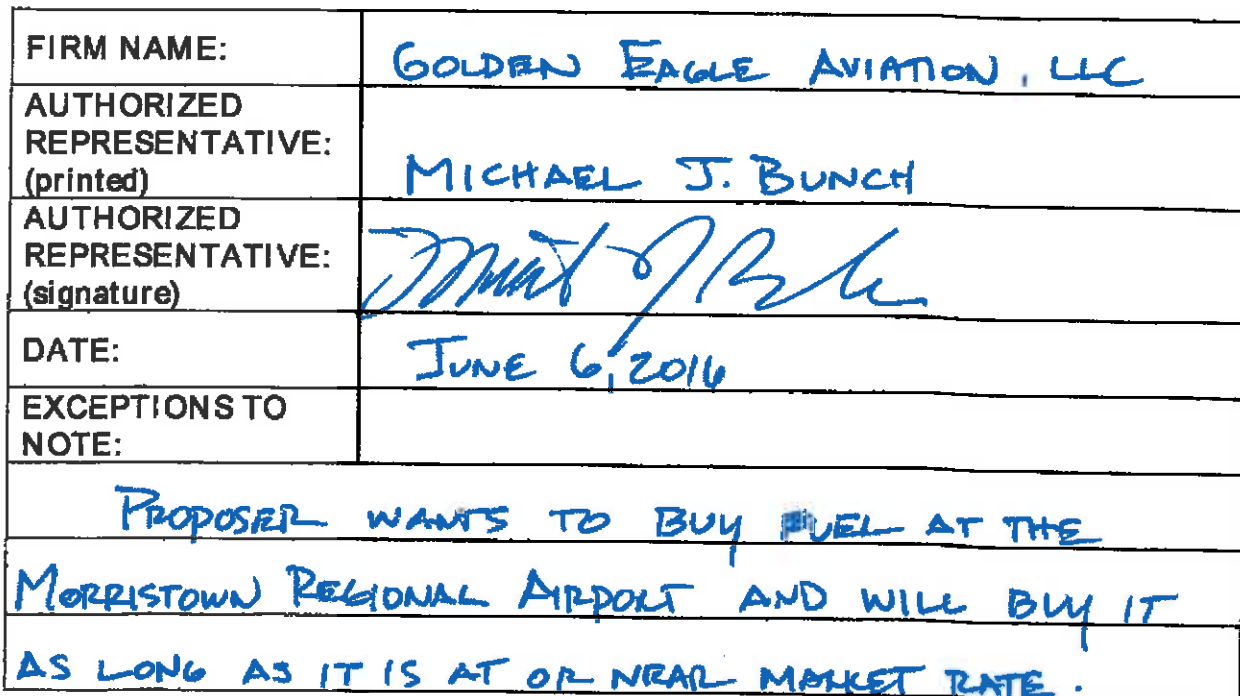 FIRM NAME: GOLDEN EAGLE AVIATION, LLC
AUTHORIZED
REPRESENTATIVE:
(printed) MICHAEL J. BUNCH
AUTHORIZED
REPRESENTATIVE:
(signature)
DATE: JUNE 6, 2016
EXCEPTIONS TO
NOTE:
PROPOSER WANTS TO BUY FUEL AT THE
MORRISTOWN REGIONAL AIRPORT AND WILL BUY IT
AS LONG AS IT IS AT OR NEAR MARKET RATE.